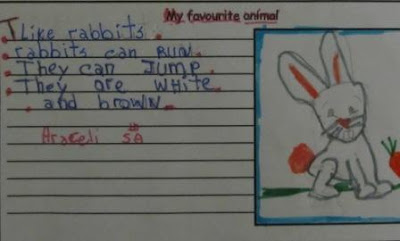 My favourite animal
I Like rabbits.
rabbits can RUN.
They can JUMP.
They are WHITE
and brown.
Araceli 5A